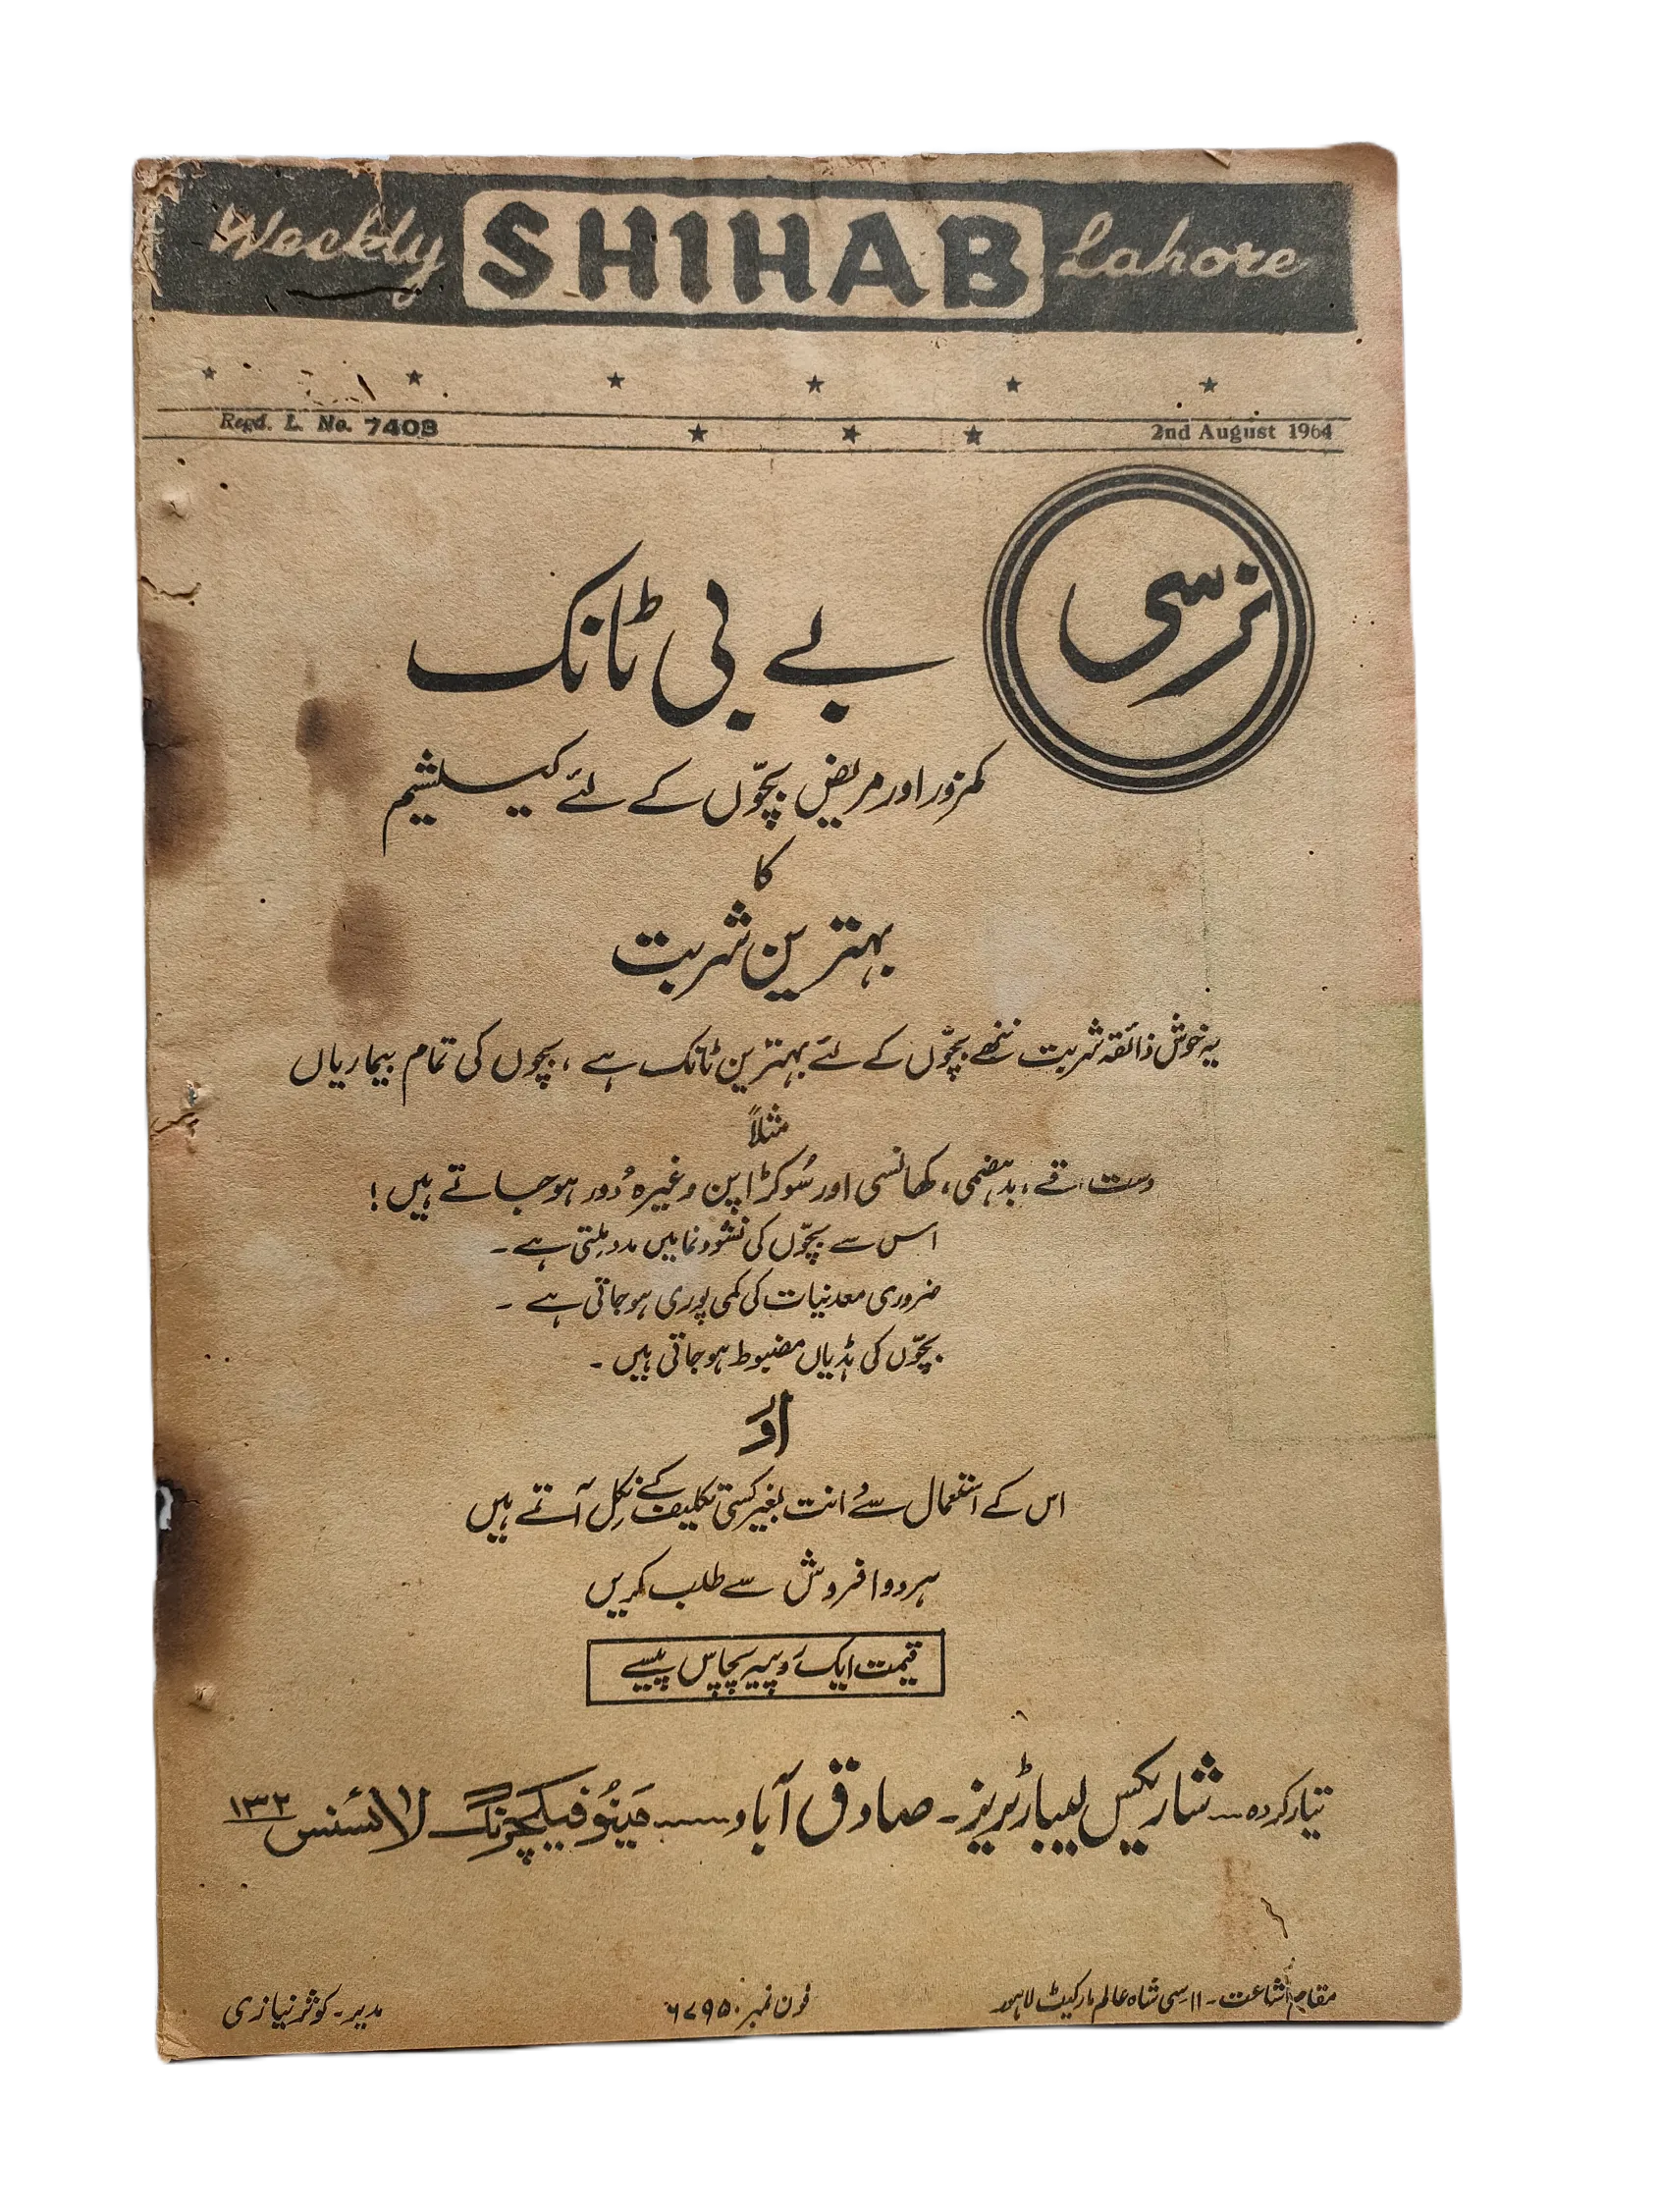 Weekly SHIHAB Lahore
Regd. L. No. 7403 2nd August 1964
نرسی
بے بی ٹانک
کمزور اور مریض بچّوں کے لئے کیلشیم
کا
بہترین شربت
یہ خوش ذائقہ شربت ننھے بچّوں کے لئے بہترین ٹانک ہے ، بچوں کی تمام بیماریاں
مثلاً
دست ، قے ، بدہضمی ، کھانسی اور سُوکڑا پن وغیرہ دُور ہو جاتے ہیں !
اس سے بچّوں کی نشوونما میں مدد ملتی ہے ۔
ضروری معدنیات کی کمی پوری ہو جاتی ہے ۔
بچّوں کی ہڈیاں مضبوط ہو جاتی ہیں ۔
اور
اس کے استعمال سے دانت بغیر کسی تکلیف کے نکل آتے ہیں
ہر دوا فروش سے طلب کریں
قیمت ایک روپیہ پچاس پیسے
تیار کردہ ۔۔۔ شاریکس لیبارٹریز ۔ صادق آباد ۔۔۔۔۔۔ مینُوفیکچرنگ لائسنس ۱۳۲
مقام اشاعت ۔ ۱۱ سی شاہ عالم مارکیٹ لاہور فون نمبر ۶۷۹۵۰ مدیر ۔ کوثر نیازی